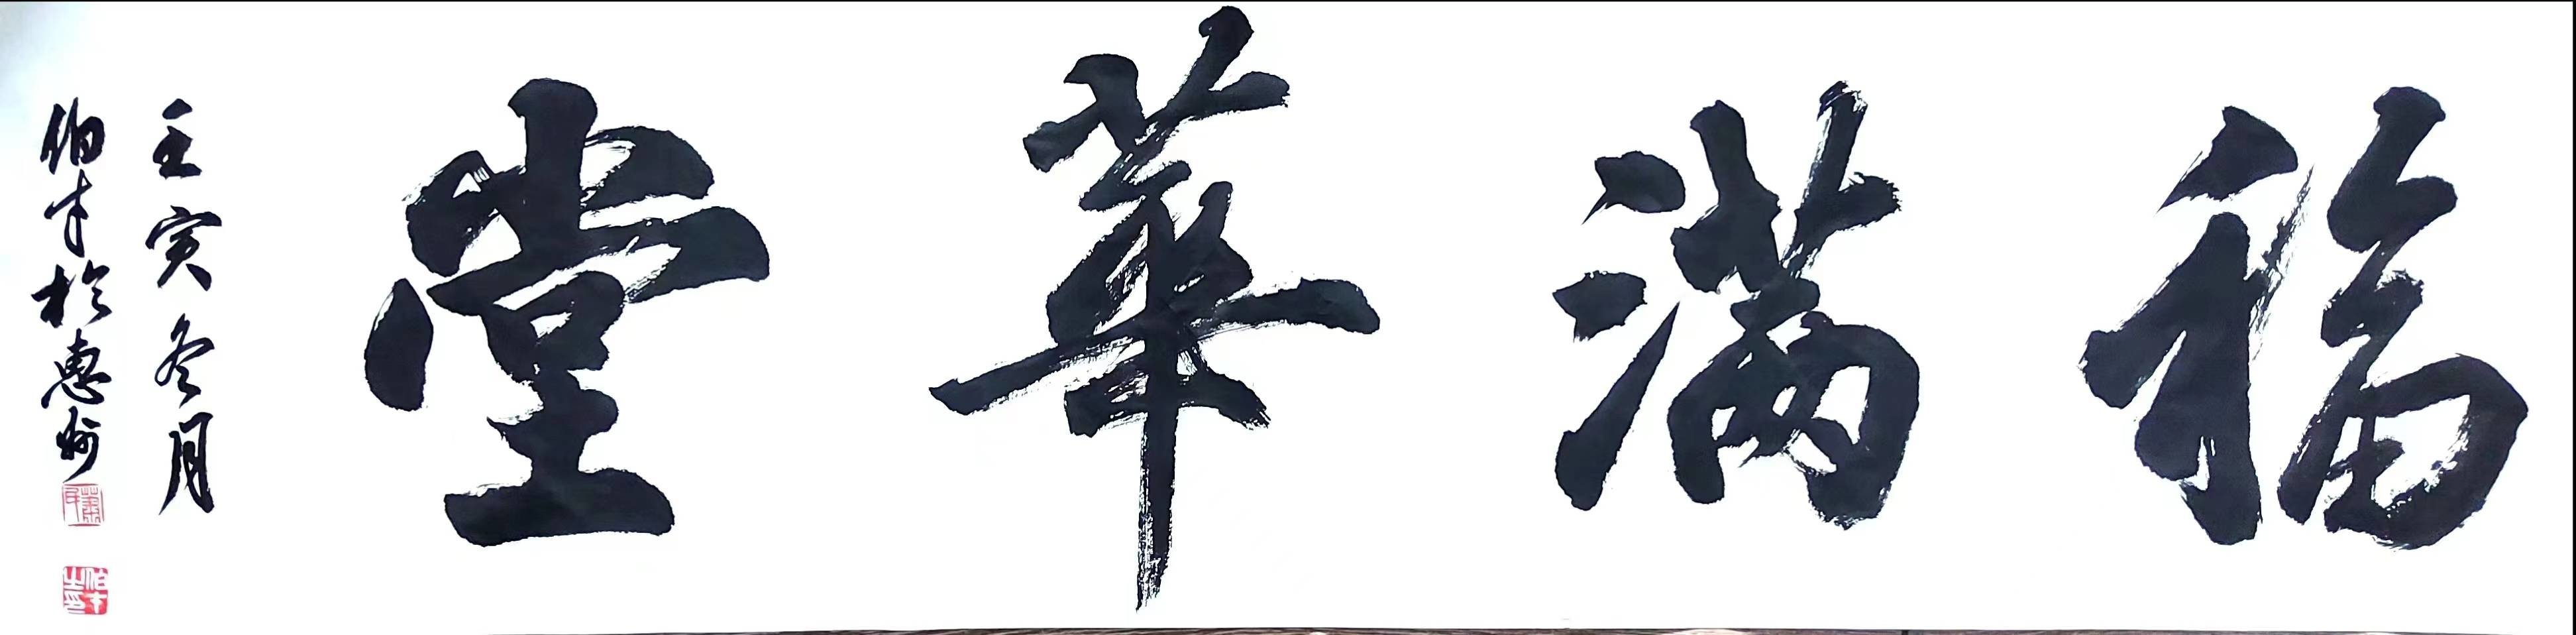 福滿華堂
壬寅冬月
伯年於惠州